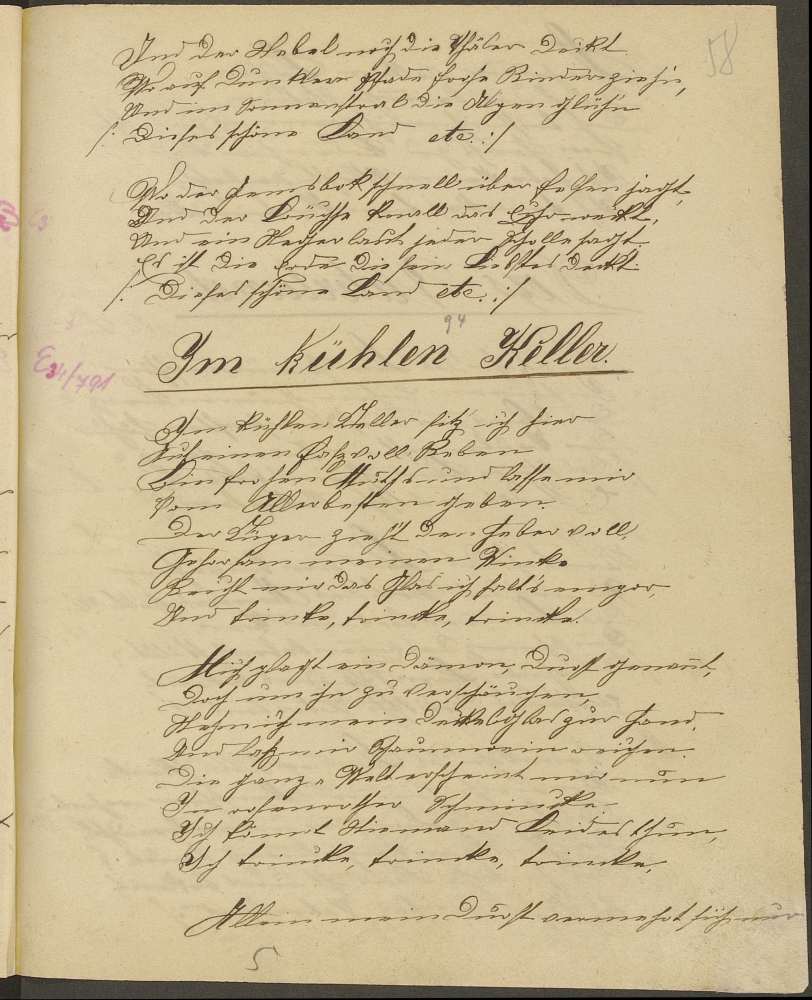 58
Und der Nebel noch die Thäler deckt
Wo auf dunkler Pfade Rinder ziehn,
Und im Sonnenstral die Alpen glühn
/: Dieses schöne Land etc. :/
Wo der Gemsbok schnell über Felsen jagt,
Und der Büchse knall das Echo weckt,
Und ein jeder sagt.
Es ist die Erde die sein Liebstes deckt.
/: Dieses schöne Land etc. :/
94
Im kühlen Keller.
E 34/791
Im kühlen Keller sitz ich hier
Auf einem Faß voll Reben
Bin frohen Muths und lasse mir
Vom Allerbesten geben.
Der Küper zieht den Heber voll,
Gehorsam meinem Winke
Reicht mir das Glas ich halt's empor,
Und trinke, trinke, trinke.
Mich plagt ein Dämon, Durst genannt,
Doch um ihn zu verscheuchen,
Nehm ich mein Deckelglas zur Hand,
Und laß mir Rheinwein reichen.
Die ganze Welt erscheint mir nun
In rosenrother Schminke
Ich könnt Niemand Leides thun,
Ich trinke, trinke, trinke,
Allein mein Durst vermehrt sich nur
5